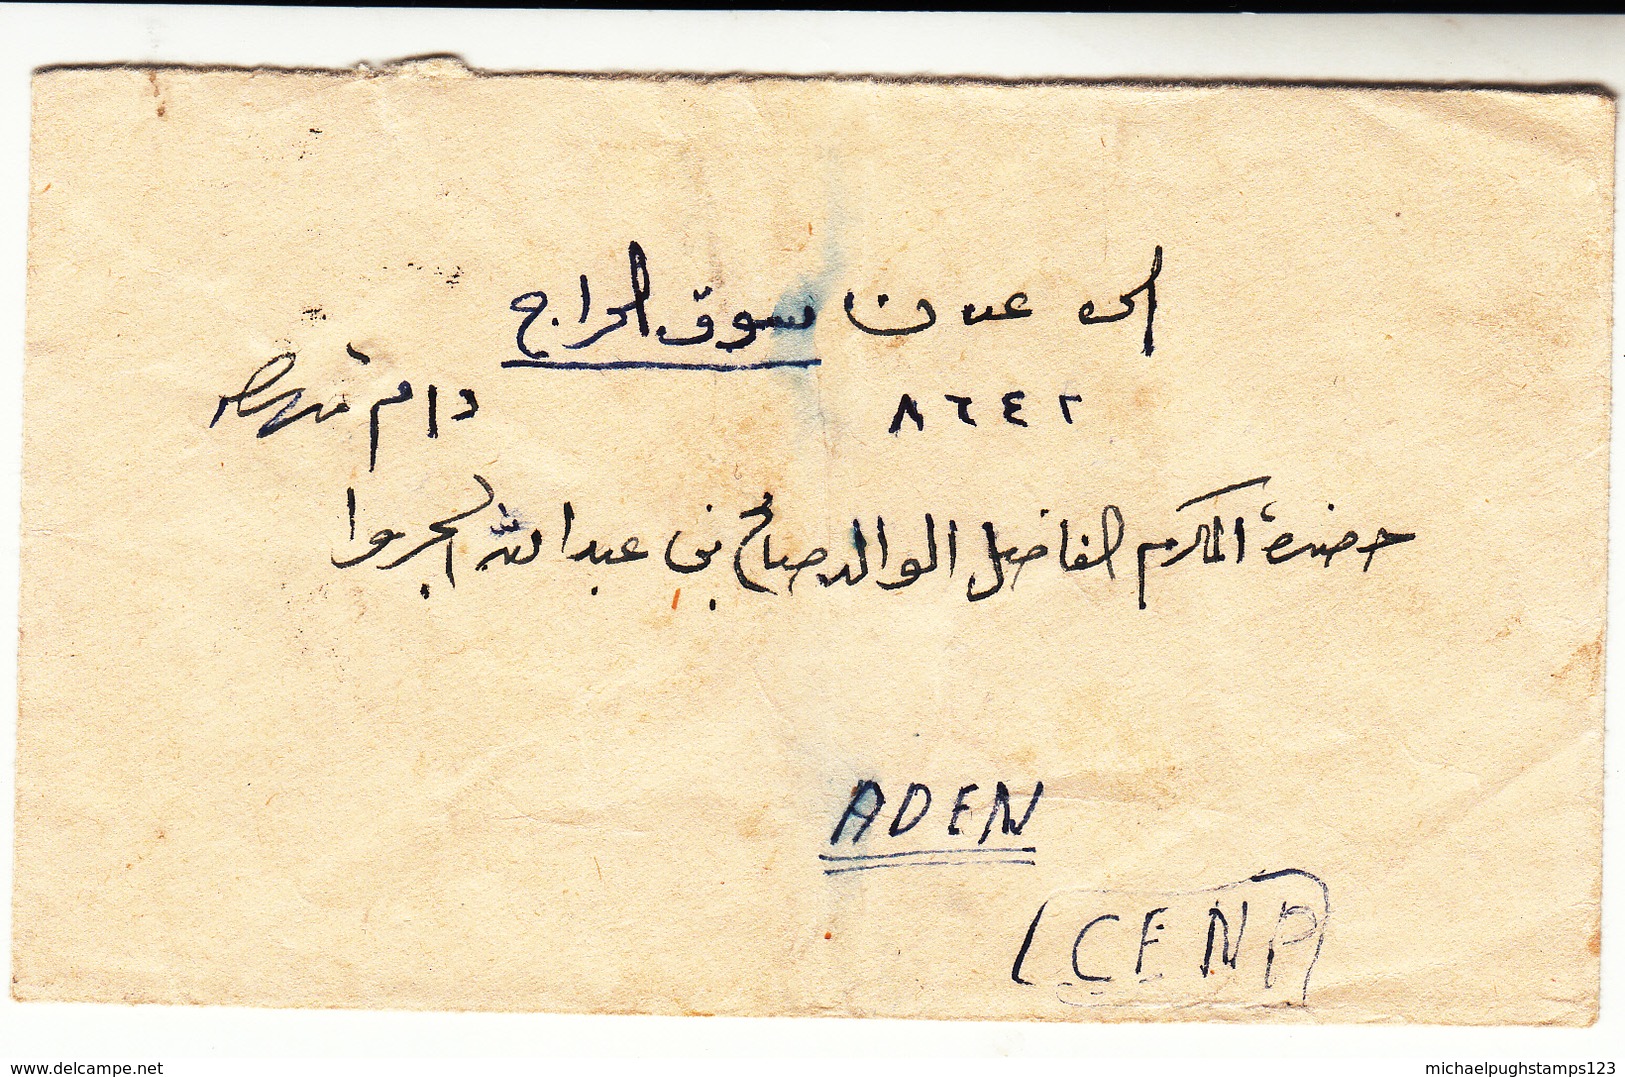 الى عدن سوق الحراج
٨٦٤٢ دام
حضرة المكرم الفاضل الوالد صالح بن عبدالله الجروا
ADEN
CENP
www.delcampe.net
michaelpughstamps123